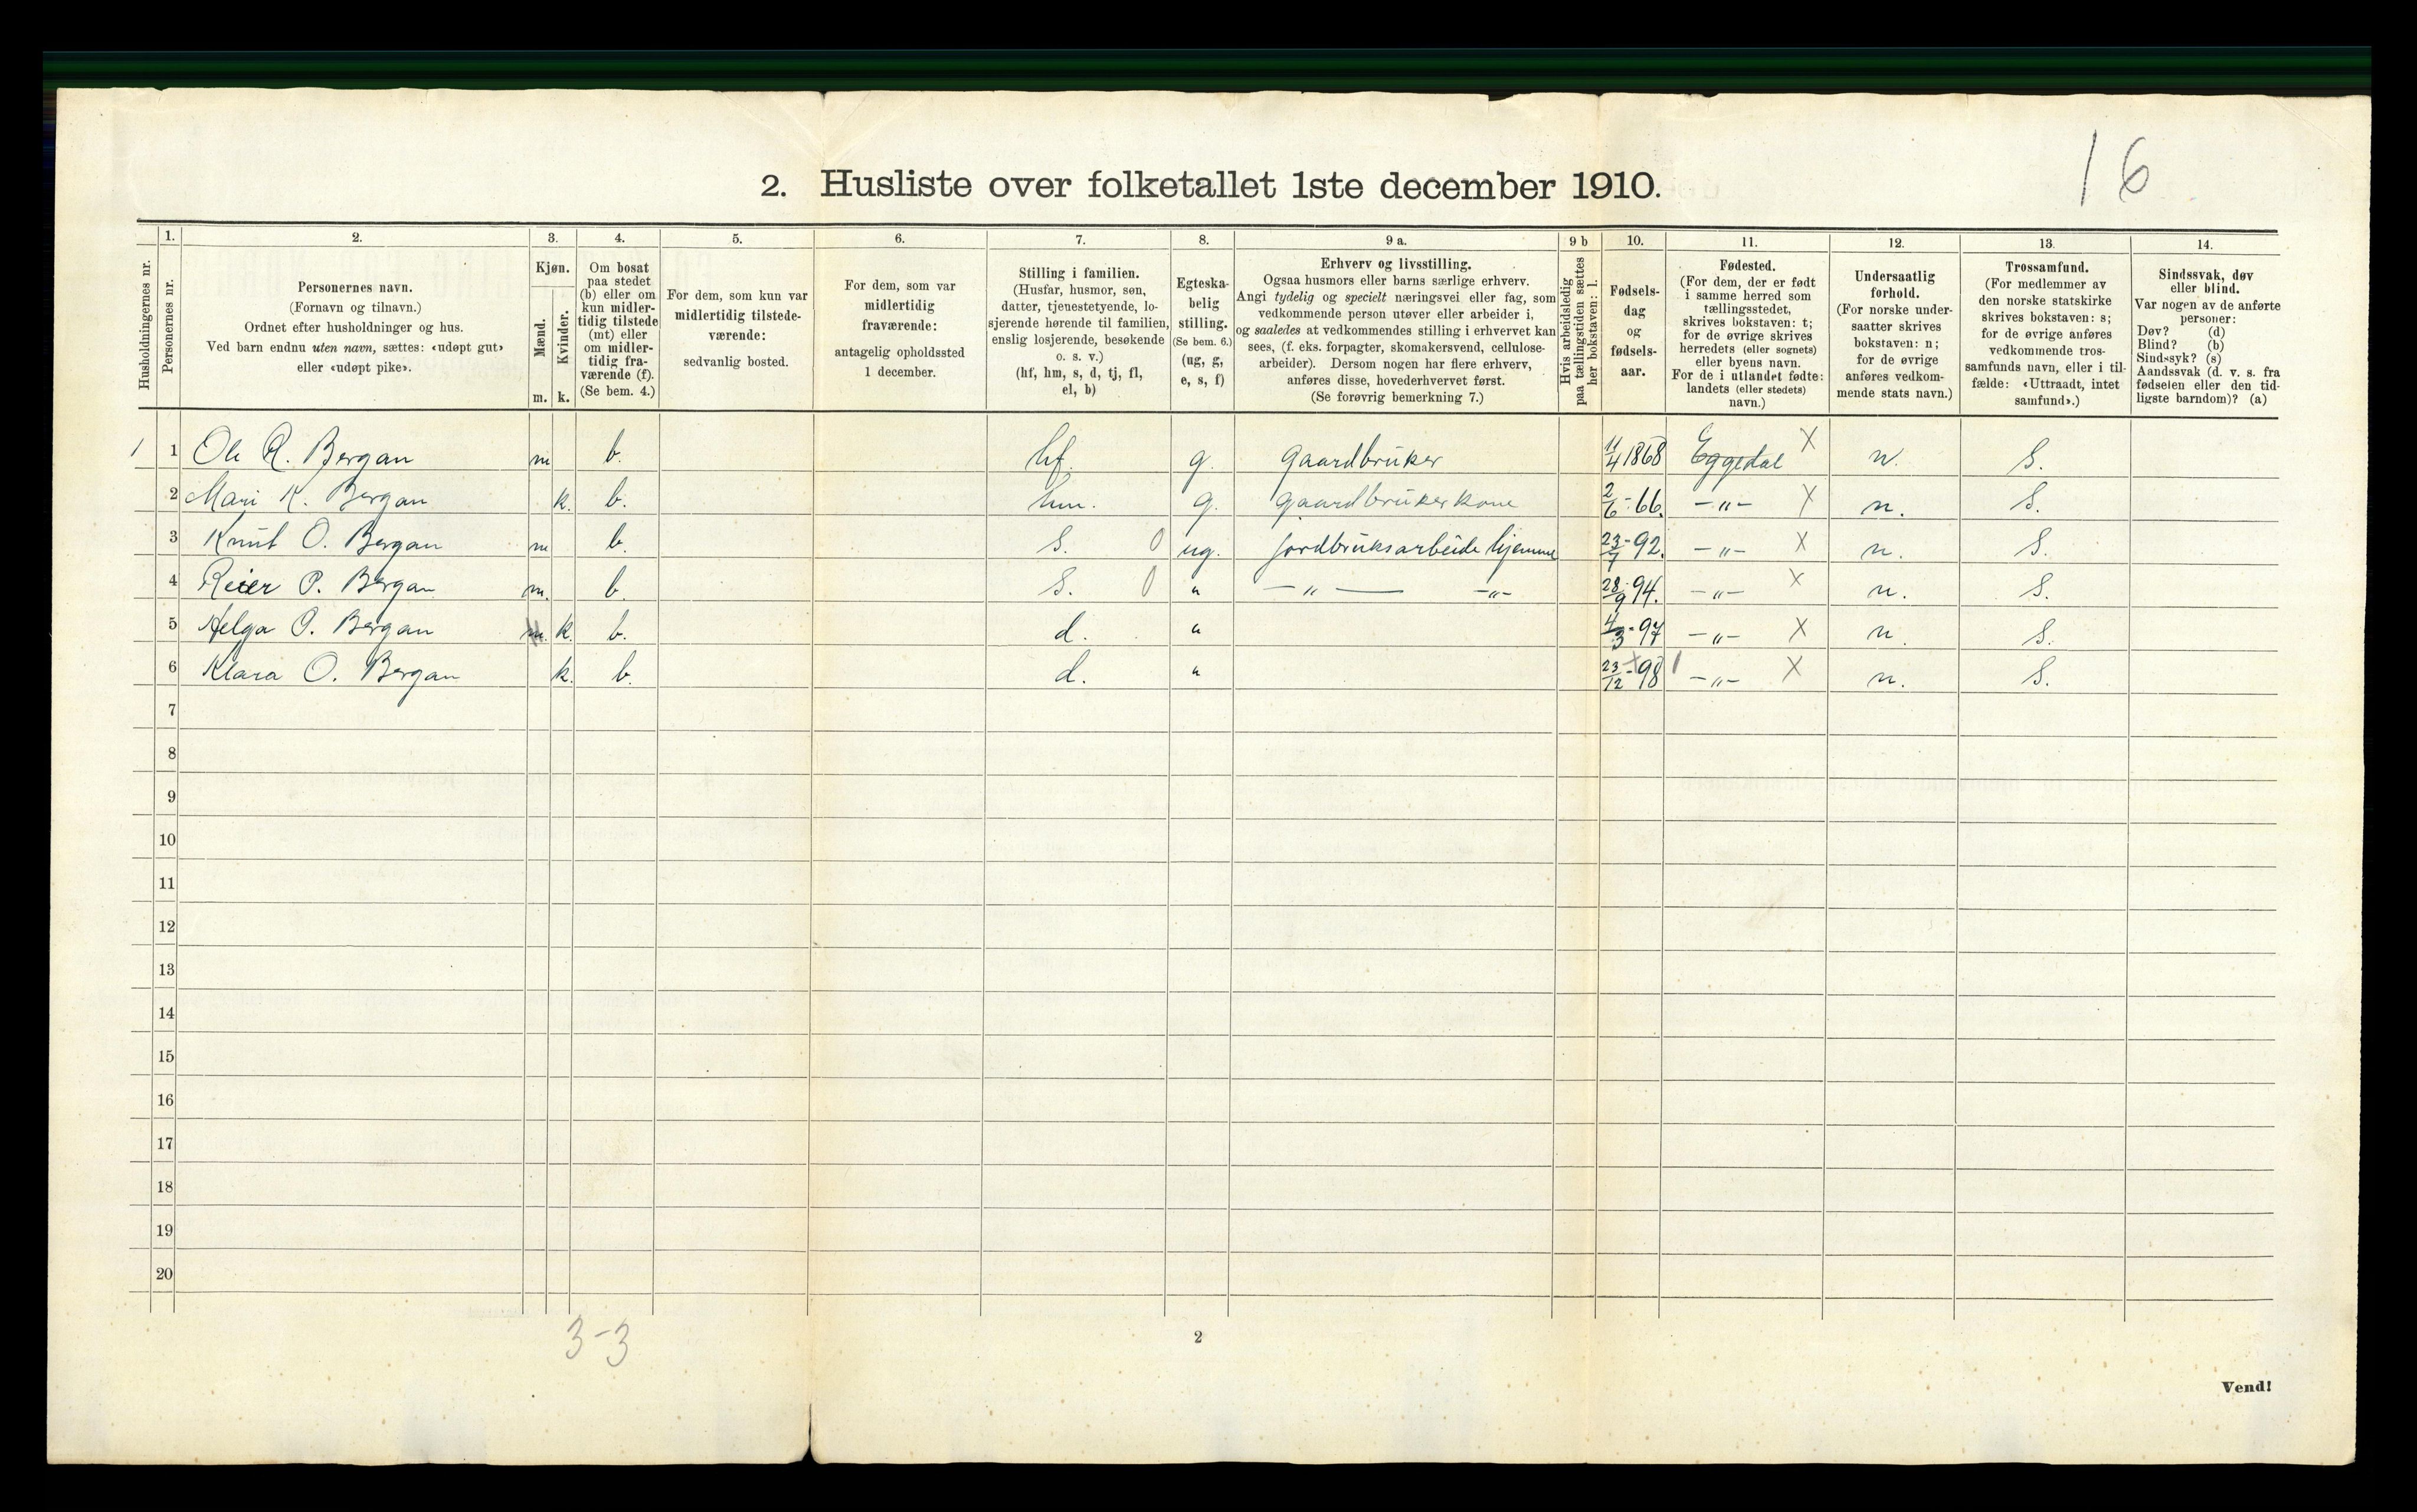 16
2. Husliste over folketallet 1ste december 1910.
Husholdningernes nr.
1.
Personernes nr.
2.
Personernes navn.
(Fornavn og tilnavn.)
Ordnet efter husholdninger og hus.
Ved barn endnu uten navn, sættes: «udøpt gut»
eller «udøpt pike».
3.
Kjøn.
Mænd.
Kvinder.
m. k.
4.
Om bosat
paa stedet
(b) eller om
kun midler-
tidig tilstede
(mt) eller
om midler-
tidig fra-
værende (f).
(Se bem. 4.)
5.
For dem, som kun var
midlertidig tilstede-
værende:
sedvanlig bosted.
6.
For dem, som var
midlertidig
fraværende:
antagelig opholdssted
1 december.
7.
Stilling i familien.
(Husfar, husmor, søn,
datter, tjenestetyende, lo-
sjerende hørende til familien,
enslig losjerende, besøkende
o. s. v.)
(hf, hm, s, d, tj, fl,
el, b)
8.
Egteska-
belig
stilling.
(Se bem. 6.)
(ug, g,
e, s, f)
9 a.
Erhverv og livsstilling.
Ogsaa husmors eller barns særlige erhverv.
Angi tydelig og specielt næringsvei eller fag, som
vedkommende person utøver eller arbeider i,
og saaledes at vedkommendes stilling i erhvervet kan
sees, (f. eks. forpagter, skomakersvend, cellulose-
arbeider). Dersom nogen har flere erhverv,
anføres disse, hovederhvervet først.
(Se forøvrig bemerkning 7.)
9 b
Hvis arbeidsledig
paa tællingstiden sættes
her bokstaven: l.
10.
Fødsels-
dag
og
fødsels-
aar.
11.
Fødested.
(For dem, der er født
i samme herred som
tællingsstedet,
skrives bokstaven: t;
for de øvrige skrives
herredets (eller sognets)
eller byens navn.
For de i utlandet fødte:
landets (eller stedets)
navn.)
12.
Undersaatlig
forhold.
(For norske under-
saatter skrives
bokstaven: n;
for de øvrige
anføres vedkom-
mende stats navn.)
13.
Trossamfund.
(For medlemmer av
den norske statskirke
skrives bokstaven: s;
for de øvrige anføres
vedkommende tros-
samfunds navn, eller i til-
fælde: «Uttraadt, intet
samfund».)
14.
Sindssvak, døv
eller blind.
Var nogen av de anførte
personer:
Døv? (d)
Blind? (b)
Sindssyk? (s)
Aandssvak (d. v. s. fra
fødselen eller den tid-
ligste barndom)? (a)
1 1 Ole R. Bergan m b. hf. g. gaardbruker 11/4 1868 Eggedal X n. S.
2 Mari K. Bergan k. b. hm. g. gaardbrukerkone 2/6-66. -"- X n. S.
3 Knut O. Bergan m b. S. 0 ug. jordbruksarbeide hjemme 23/7-92. -"- X n. S.
4 Reier O. Bergan m. b. S. 0 " -"- -"- 28/9-94. -"- X n. S.
5 Helga O. Bergan k. b. d. " 4/3-97 -"- X n. S.
6 Klara O. Bergan k. b. d. " 23/12-98 -"- X n. S.
7
8
9
10
11
12
13
14
15
16
17
18
19
20
3-3
2
Vend!